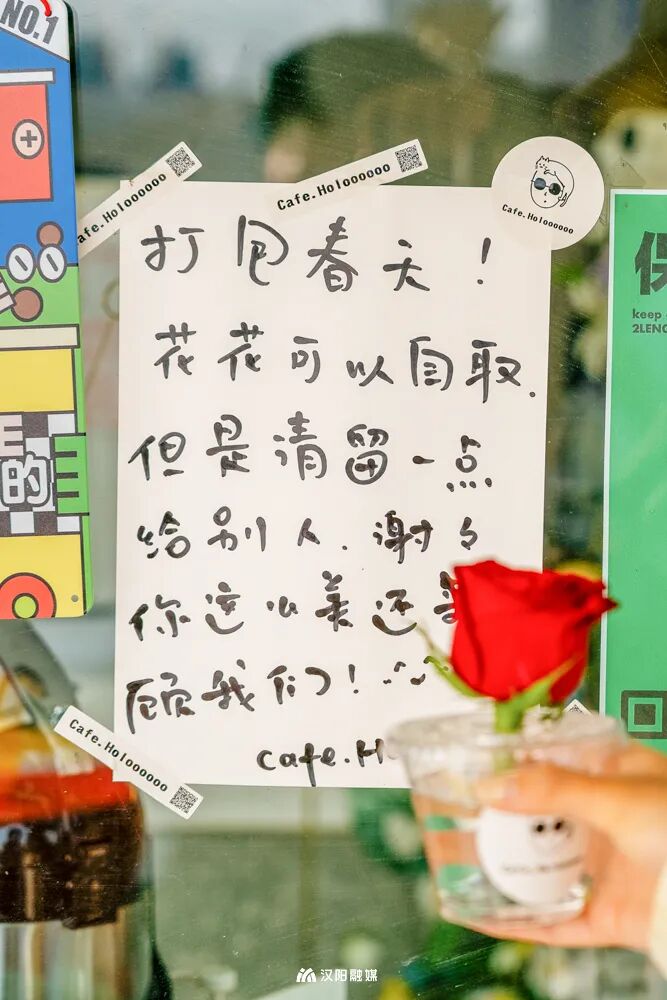 NO.1
Cafe.Holoooooo
Cafe.Holoooooo
Cafe.Holoooooo
打包春天！
花花可以自取.
但是清留一点
给别人.谢々
你这么美还
顾我们！^^
cafe.H
Cafe.Holoooooo
的
keep
2LENG
汉阳融媒